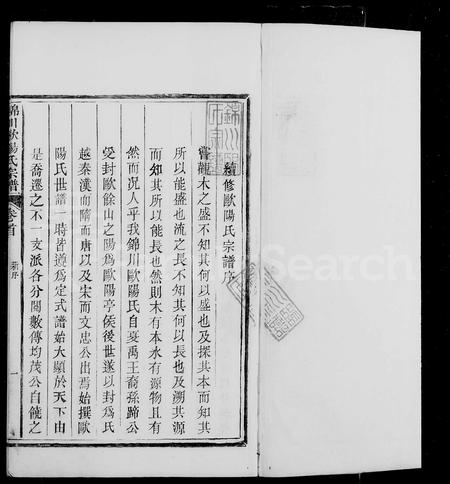 續修歐陽氏宗譜序
嘗觀木之盛不知其何以盛也及探其本而知其
所以能盛也流之長不知其何以長也及溯其源
而知其所以能長也然則木有本水有源物且有
然而況人乎我錦川歐陽氏自夏禹王裔孫蹄公
受封歐餘山之陽為歐陽亭侯後世遂以封為氏
越秦漢而隋而唐以及宋而文忠公出焉始撰歐
陽氏世譜一時皆遵為定式譜始大顯於天下由
是喬遷之不一支派各分閱數傳均茂公自饒之
錦川歐陽氏宗譜
卷首
新序
一
Search